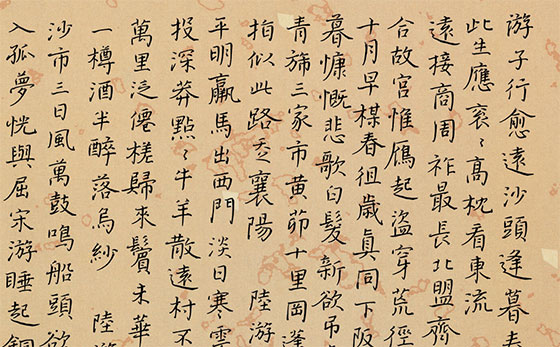 游子行愈遠沙頭逢暮春
此生應袞々高枕看東流
遠接商周祚最長北盟齊
合故宮惟鴈起盜穿荒徑
十月早楳春徂歲眞同下阪
暮慷慨悲歌白髮新欲弔
青旆三家市黃茆十里岡蓬
似此路襄陽 陸游
平明羸馬出西門淡日寒雲
投深莽點々牛羊散遠村不
萬里泛僊槎歸來鬢未華
一樽酒半醉落烏紗 陸游
沙市三日風萬鼓鳴船頭欲
入孤夢恍與屈宋游睡起銅